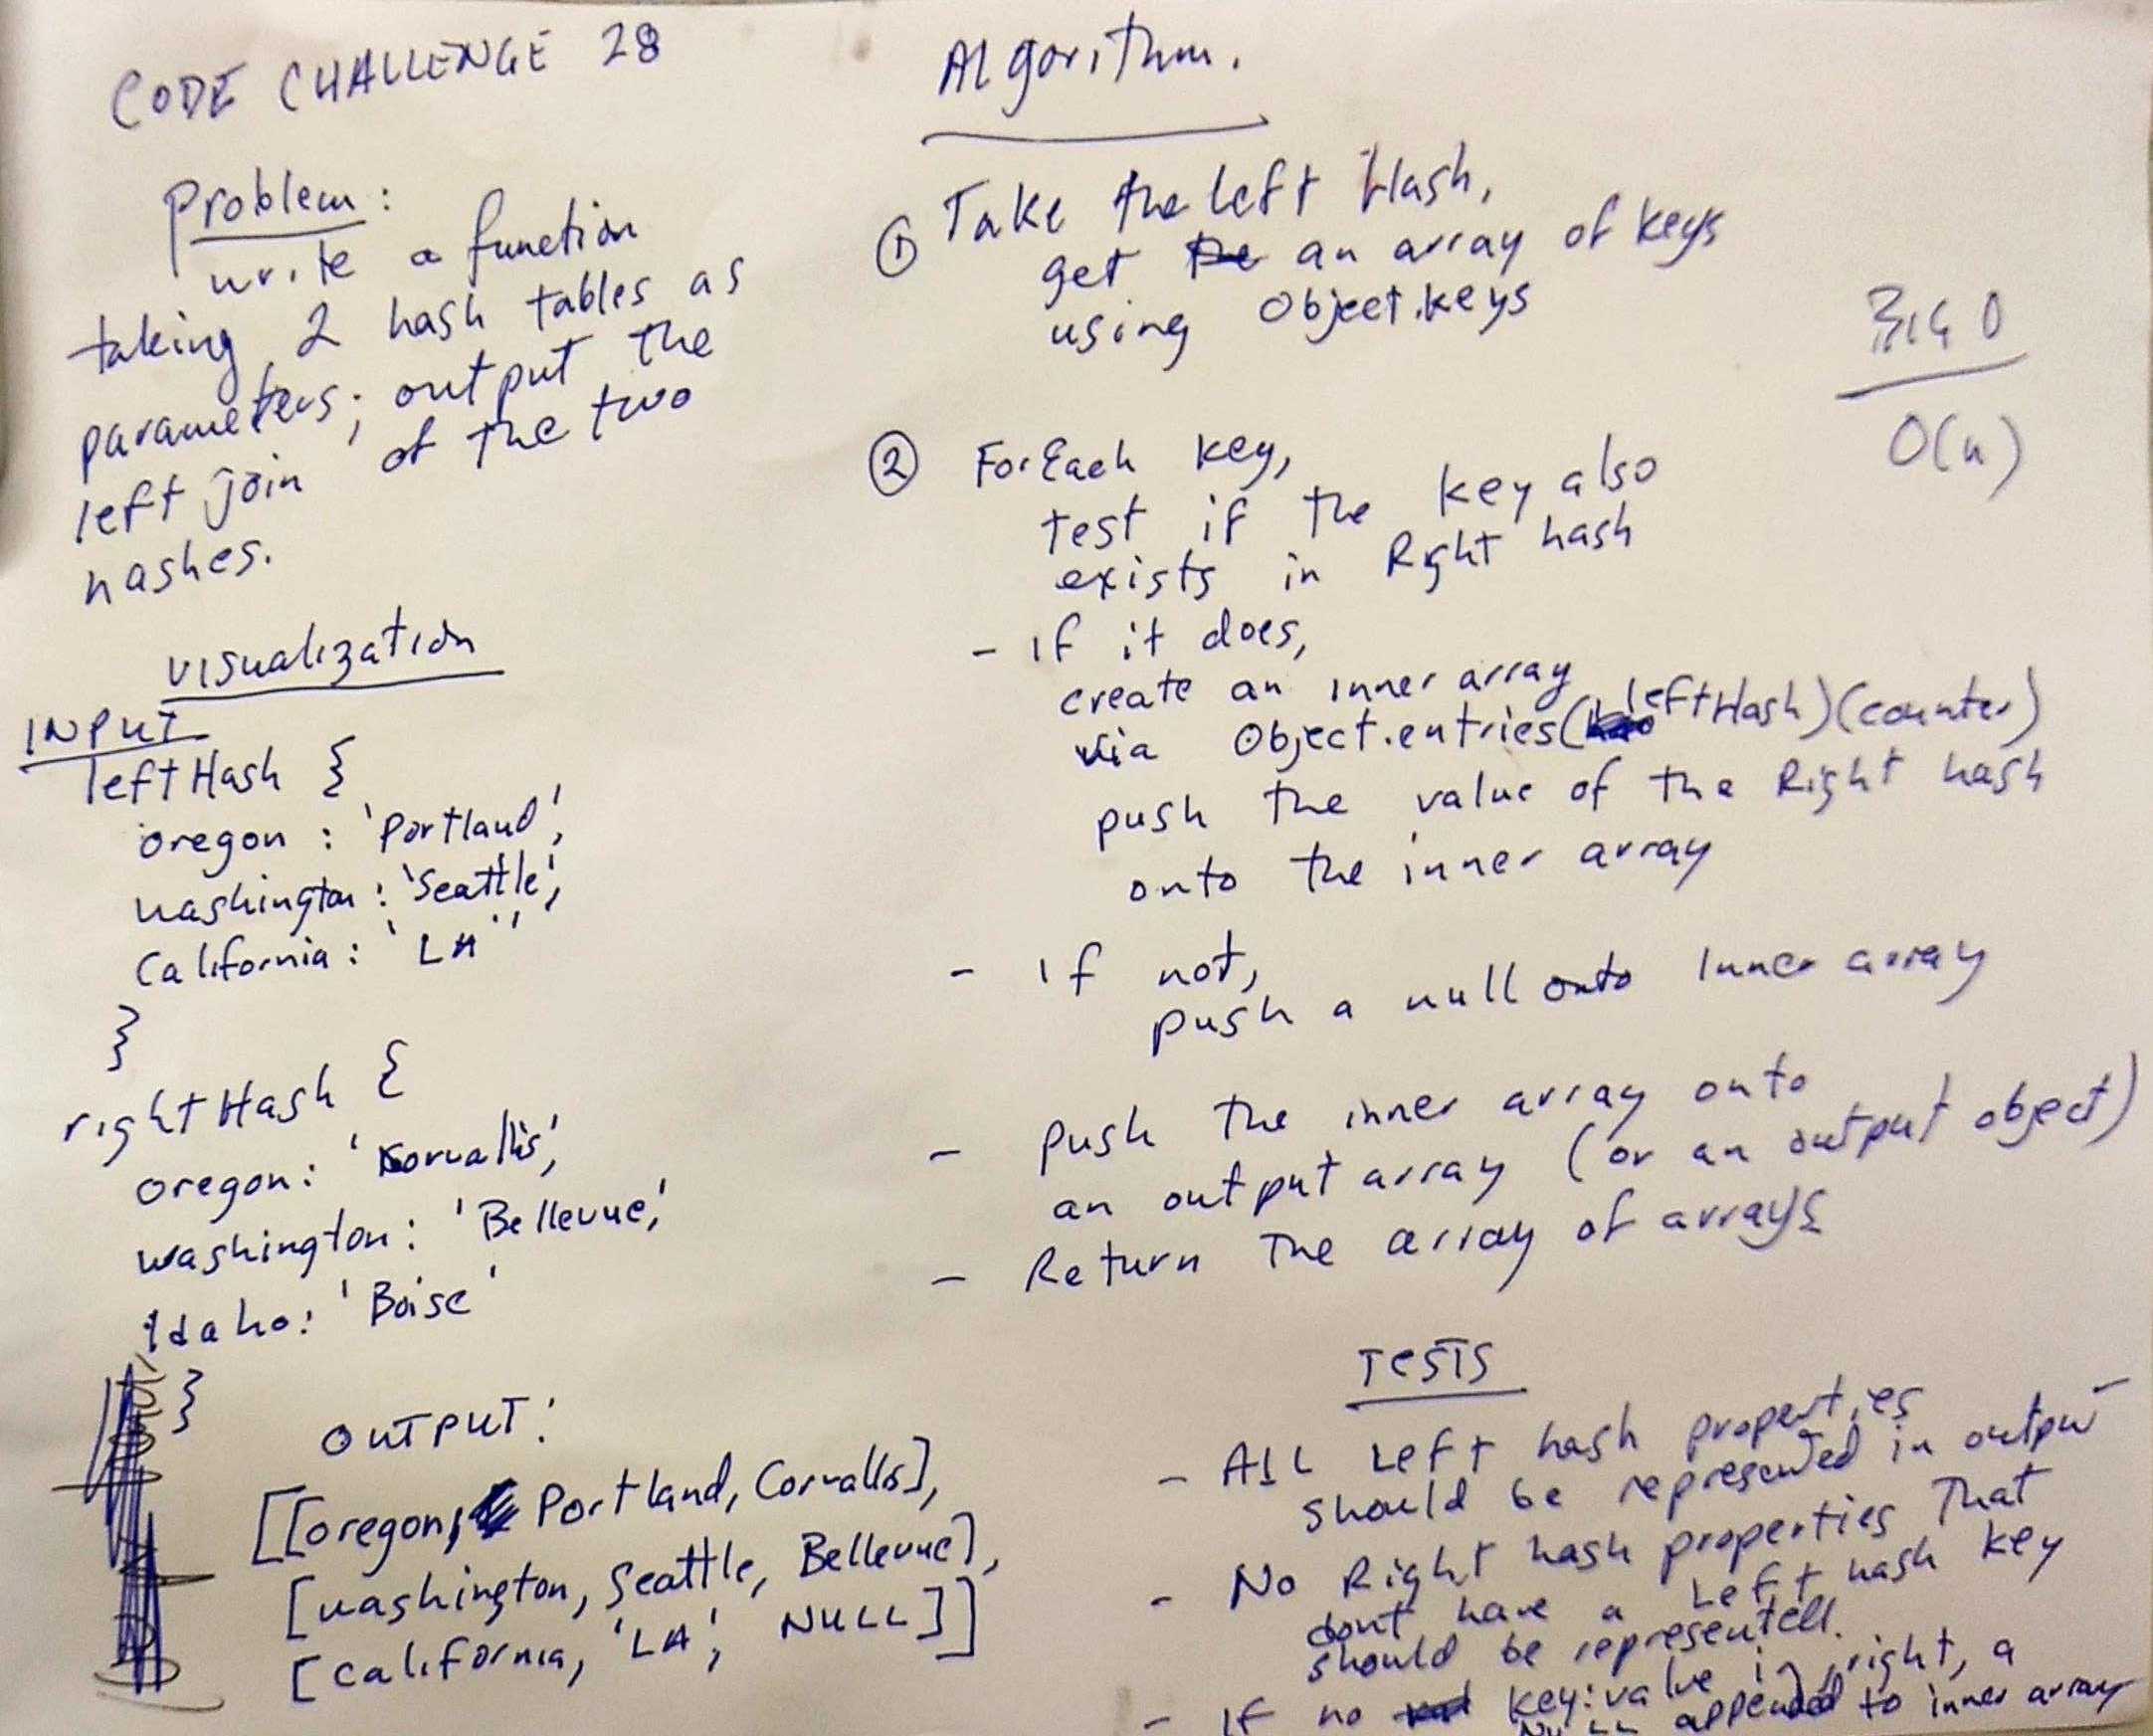 CODE CHALLENGE 28
Problem:
write a function
taking 2 hash tables as
parameters; output the
left join of the two
hashes.
visualization
INPUT
leftHash {
oregon : 'Portland',
washington : 'Seattle',
California : 'LA'
}
rightHash {
oregon: 'Corvallis',
washington: 'Bellevue',
Idaho: 'Boise'
}
OUTPUT:
[[oregon, Portland, Corvallis],
[washington, Seattle, Bellevue],
[california, 'LA', NULL]]
Algorithm.
① Take the left Hash,
get an array of keys
using Object.keys
② ForEach key,
test if the key also
exists in Right hash
- if it does,
create an inner array
via Object.entries(leftHash)(counter)
push the value of the Right hash
onto the inner array
- if not,
push a null onto inner array
- push the inner array onto
an output array (or an output object)
- Return the array of arrays
BIG O
O(n)
TESTS
- All left hash properties
should be represented in output
- No Right hash properties that
dont have a left hash key
should be represented.
- If no key:value in right, a
Null appended to inner array